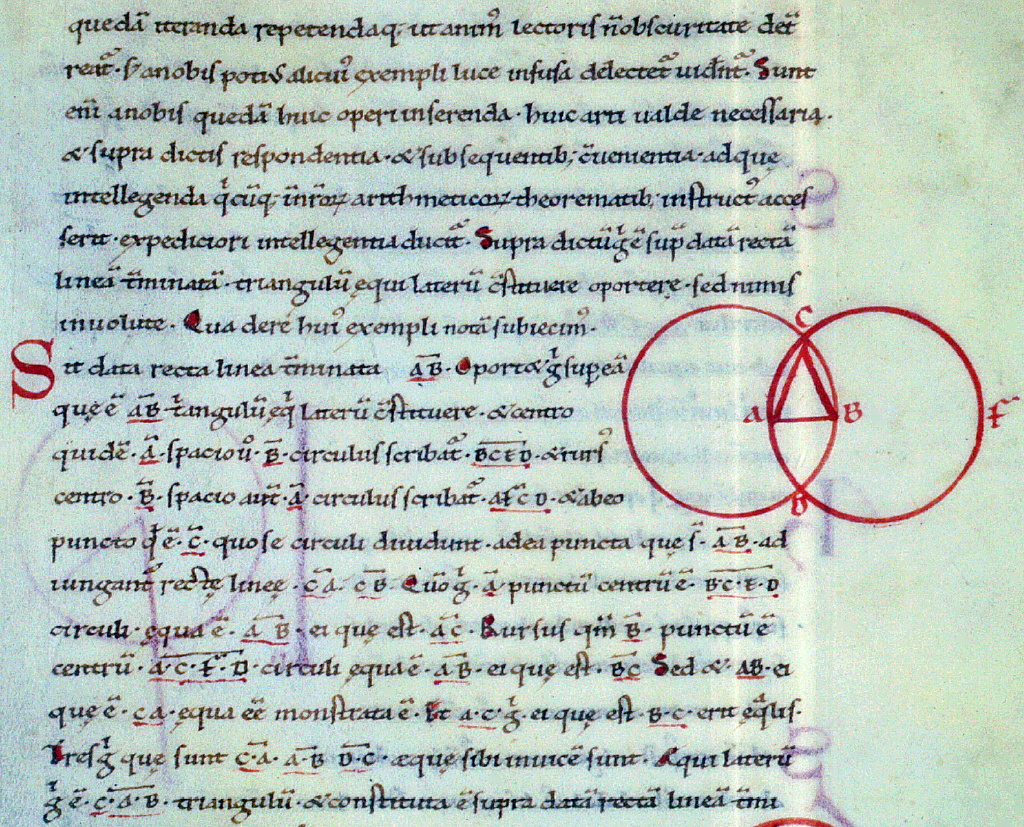 quedā iteranda repetendaq; ut anim᷒ lectoris n̄ obscuritate det̄
reat᷒. s; a nobis potius alicui᷒ exempli luce infusa delectet᷒ uident᷒. Sunt
enī a nobis quedā huic operi inserenda · huic arti ualde necessaria ·
& supra dictis respondentia · & subsequentib; c̄uenientia · ad que
intellegenda q̇cūq; in̄roꝝ arithmeticoꝝ theorematib; instruct᷒ acces
serit · expediciori intellegentia ducit᷒. Supra dictū g̊ ē sup̄ datā rectā
lineā t̄minatā · triangulū equi laterū c̄stituere oportere · sed nimis
inuolute · Qua de re hui᷒ exempli notā subiecim᷒.
Sit data recta linea t̄minata A͞B · Oport& g̊ sup eā
quę ē A͞B t̊angulū eq̇ laterū c̄stituere · & centro
quidē · A · spacio u᷒ · B · circulus scribat᷒ · BCED · & rurs᷒
centro · B · spacio aūt · A · circulus scribat᷒ · AFCD · & ab eo
puncto q̇ ē · C · quo se circuli diuidunt · ad ea puncta que s̄ · AB · ad
iungant᷒ rectę lineę · CA · CB · Quō g̊ · A · punctū centrū ē · BC·E·D
circuli · ęqua ē · A B · ei que est · AC · Rursus qm̄ B · punctū ē
centrū · A·C·F·D · circuli ęqua ē · AB · ei quę est · BC Sed & · AB · ei
quę ē · CA · ęqua eē monstrata ē · Et A·C· g̊ · ei quę est · B·C · erit ęq̄lis ·
Tres g̊ quę sunt C·A · A·B D·C · æque sibi inuicē sunt · Aequi laterū
g̊ ē · C·A·B · triangulū · & constituta ē supra datā rectā lineā t̄mi
C
A
B
F
D